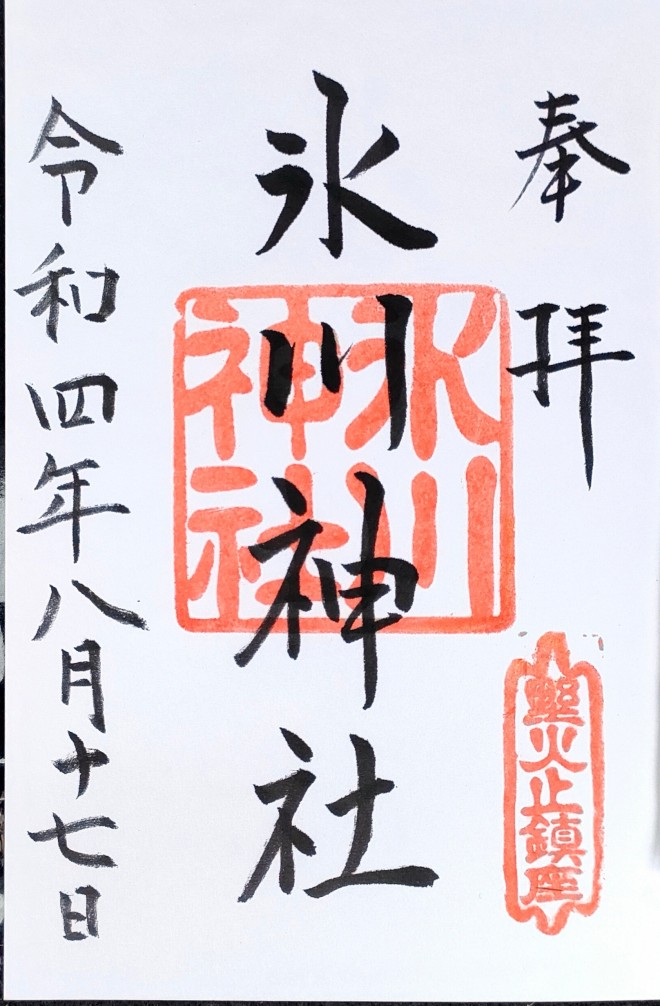 奉拝
火止鎮座
氷川神社
氷川
神社
令和四年八月十七日